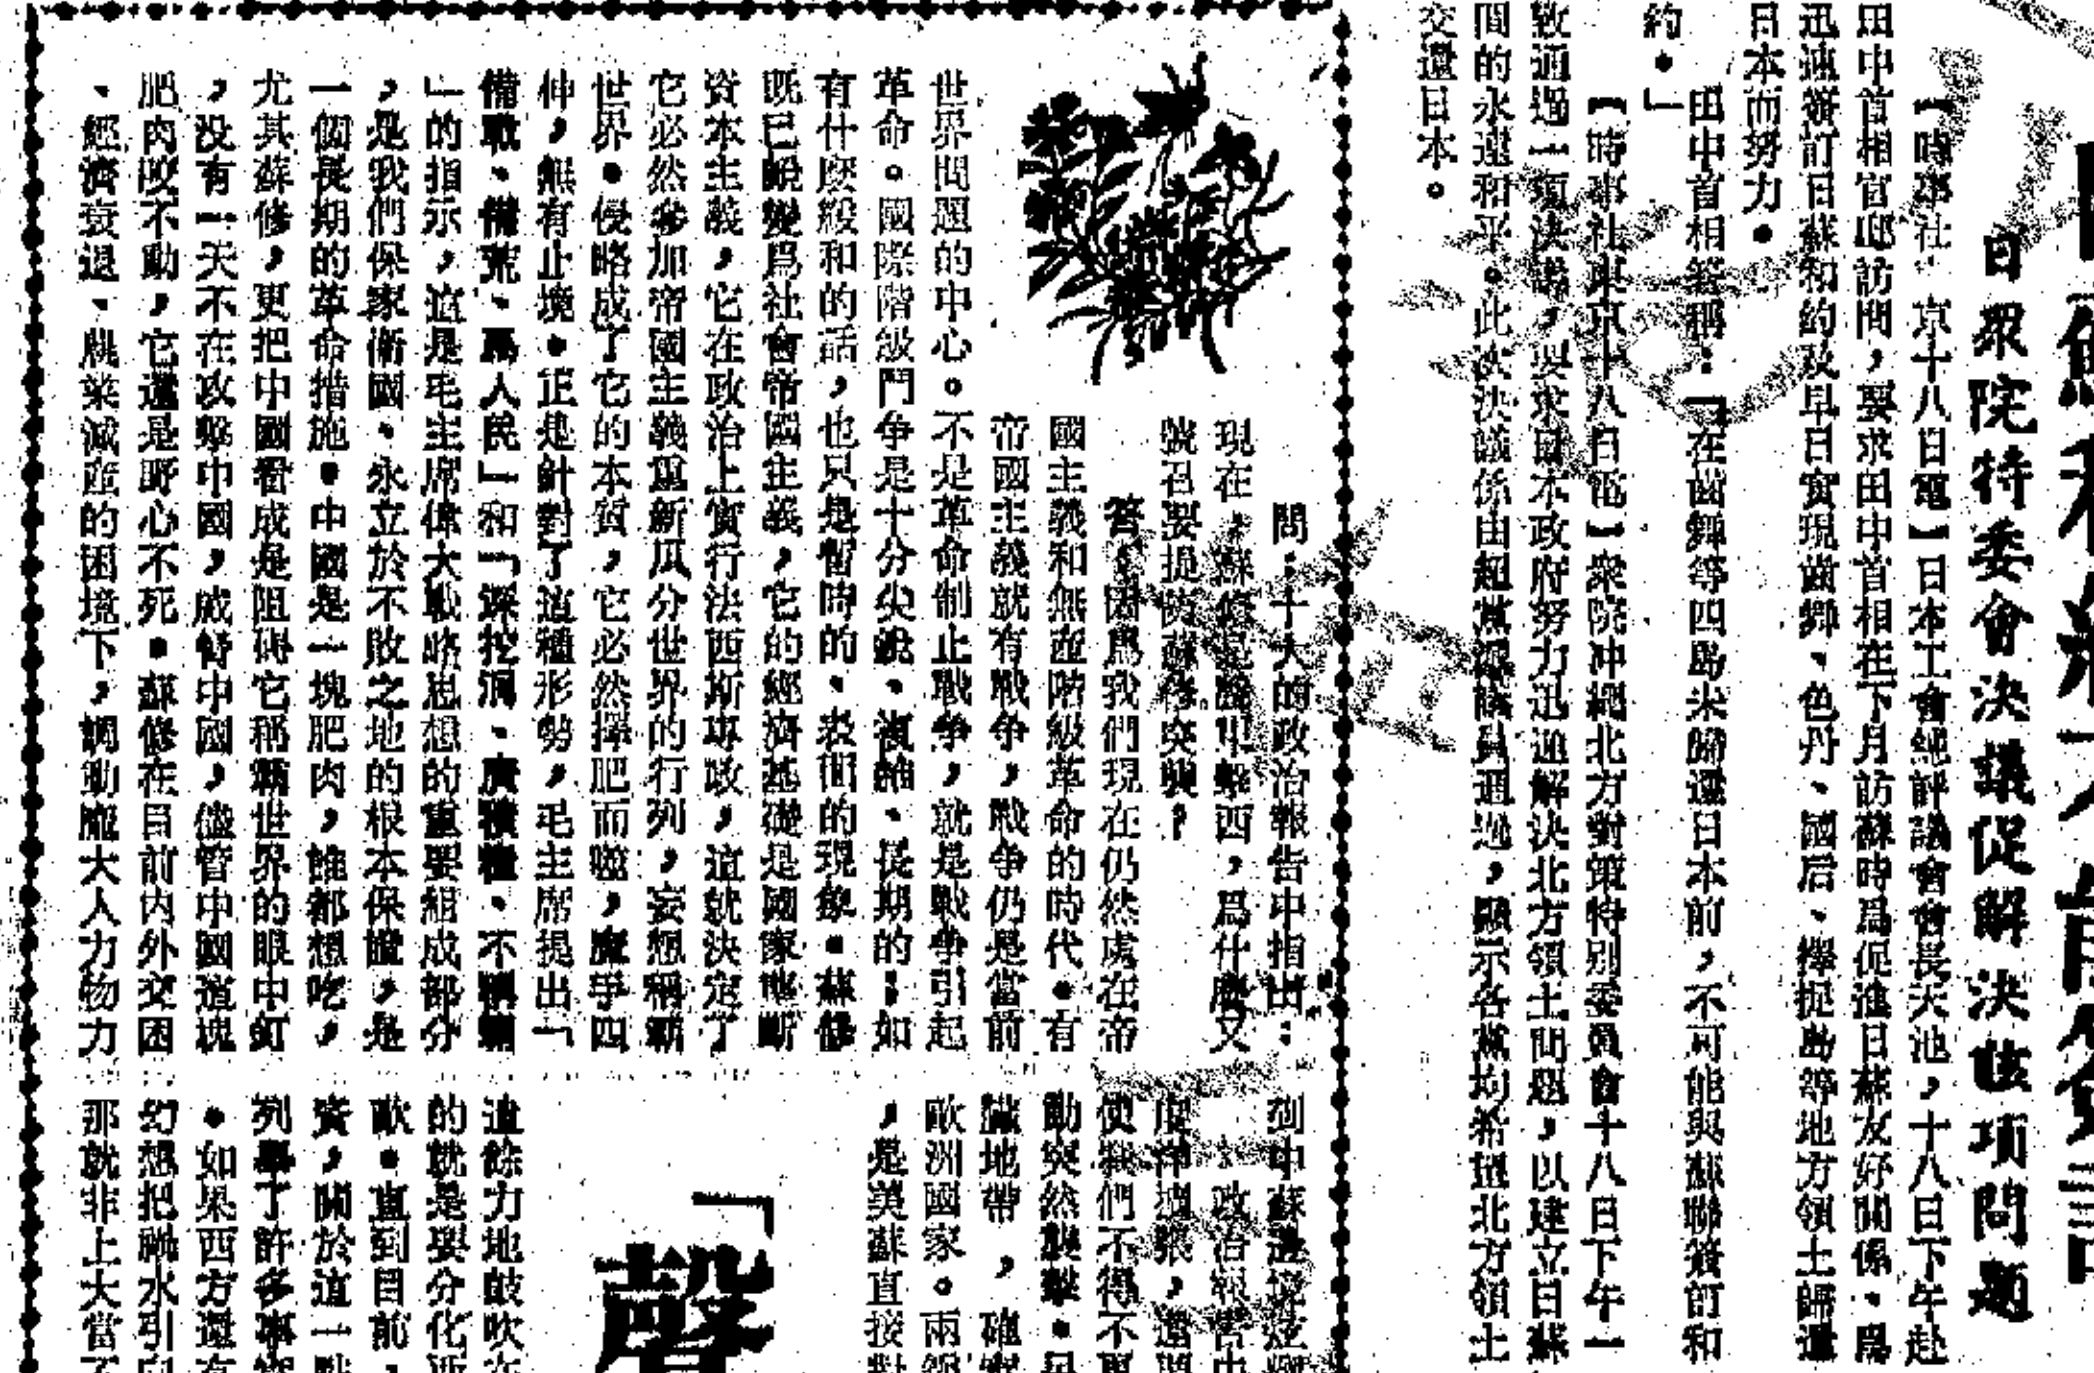 日衆院特委會決議促解決該項問題
【時事社 京十八日電】日本工會總評議會會長天池，十八日下午赴
田中首相官邸訪問，要求田中首相在下月訪蘇時爲促進日蘇友好關係、爲
迅速簽訂日蘇和約及早日實現齒舞、色丹、國后、擇捉島等地方領土歸還
日本而努力。
田中首相答稱：「在齒舞等四島未歸還日本前，不可能與蘇聯簽訂和
約。」
【時事社東京十八日電】衆院冲繩北方對策特別委員會十八日下午一
致通過一項決議，要求日本政府努力迅速解決北方領土問題，以建立日蘇
間的永遠和平。此次決議係由超黨派議員通過，顯示各黨均希望北方領土
交還日本。
問：十大的政治報告中指出：
現在，蘇修是聲東擊西，爲什麼又
號召要提防蘇修突襲？
答：因爲我們現在仍然處在帝
國主義和無產階級革命的時代。有
帝國主義就有戰爭，戰爭仍是當前
世界問題的中心。不是革命制止戰爭，就是戰爭引起
革命。國際階級鬥爭是十分尖銳、複雜、長期的！如
有什麼緩和的話，也只是暫時的、表面的現象。蘇修
既已蛻變爲社會帝國主義，它的經濟基礎是國家壟斷
資本主義，它在政治上實行法西斯專政，這就決定了
它必然參加帝國主義重新瓜分世界的行列，妄想稱霸
世界。侵略成了它的本質，它必然擇肥而噬，魔手四
伸，無有止境。正是針對了這種形勢，毛主席提出「
備戰、備荒、爲人民」和「深挖洞、廣積糧、不稱霸
」的指示，這是毛主席偉大戰略思想的重要組成部分
，是我們保家衛國、永立於不敗之地的根本保證，是
一個長期的革命措施。中國是一塊肥肉，誰都想吃，
尤其蘇修，更把中國看成是阻碍它稱霸世界的眼中釘
，没有一天不在攻擊中國，威脅中國，儘管中國這塊
肥肉咬不動，它還是野心不死。蘇修在目前內外交困
、經濟衰退、農業減產的困境下，調動龐大人力物力
到中蘇邊境
，政治報告中
使我們不得不
動突然襲擊。
臟地帶，確
歐洲國家。兩
，是美蘇直接對
「聲
遺餘力地鼓吹
的就是要分化
歐。直到目前，
實，關於這一點
列舉了許多事實
。如果西方還有
幻想把禍水引向
那就非上大當不